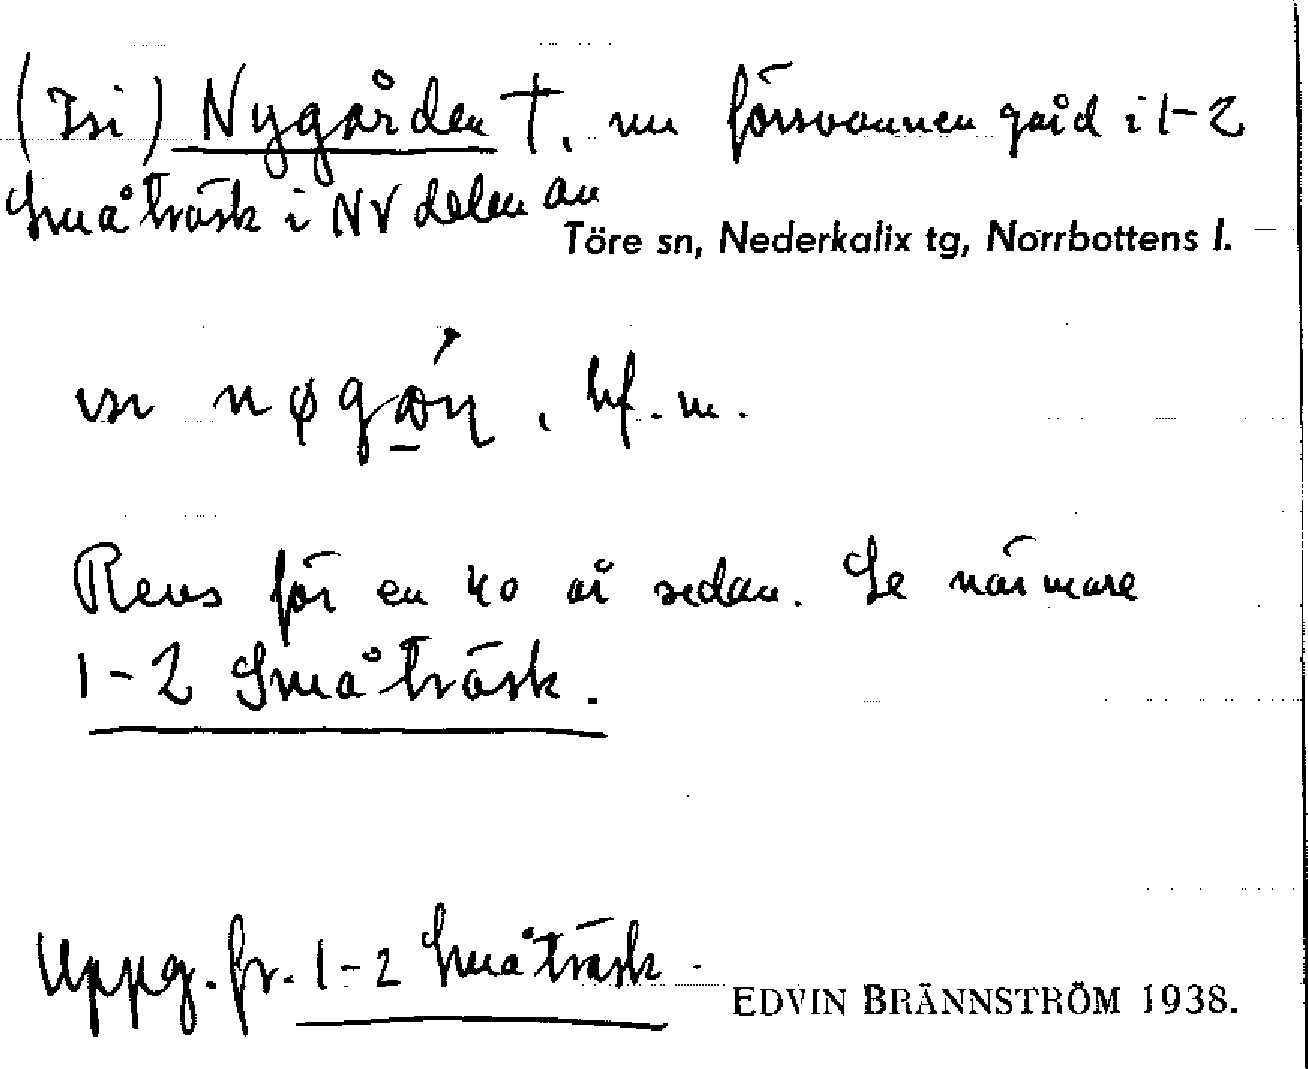 (Isi) Nygården †, nu försvunnen gård i 1-2
Småträsk i NV delen av
Töre sn, Nederkalix tg, Norrbottens l.
bf. m.
Revs för en 40 år sedan. Se närmare
1-2 Småträsk.
Uppg. fr. 1-2 Småträsk.
EDVIN BRÄNNSTRÖM 1938.